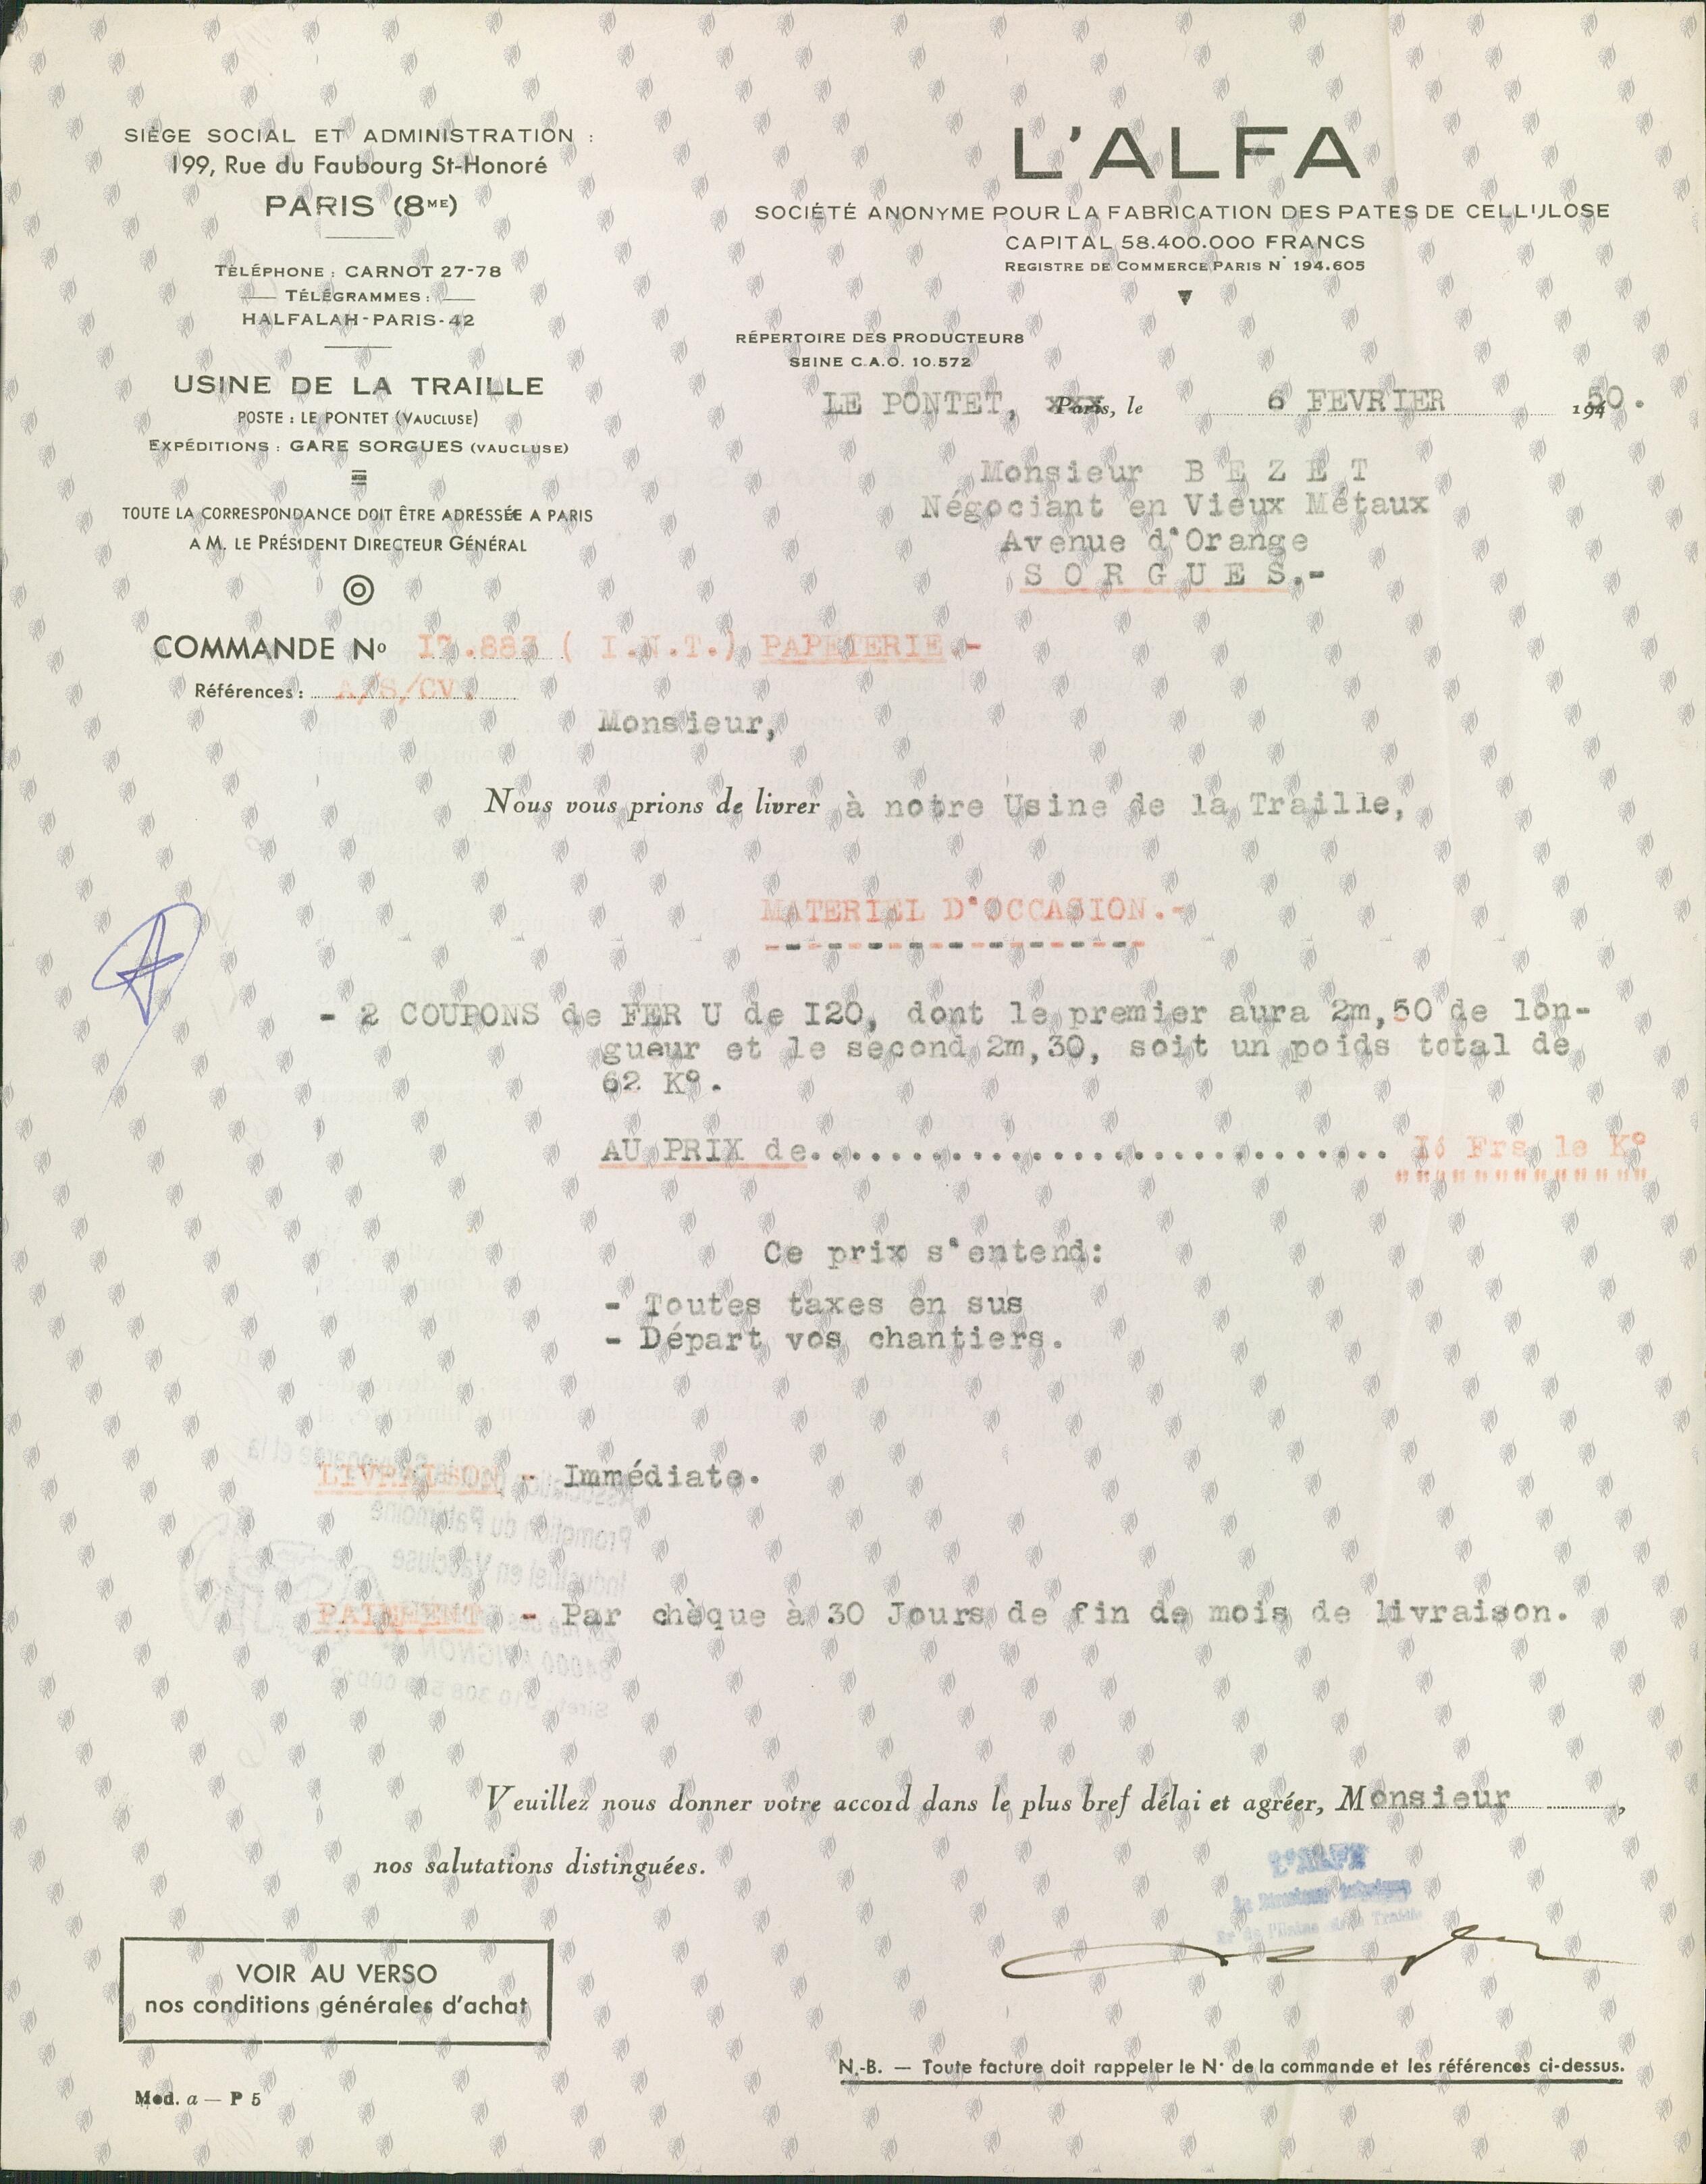 SIÈGE SOCIAL ET ADMINISTRATION :
199, Rue du Faubourg St-Honoré
PARIS (8ME)
TÉLÉPHONE : CARNOT 27-78
TÉLÉGRAMMES :
HALFALAH-PARIS-42
USINE DE LA TRAILLE
POSTE : LE PONTET (VAUCLUSE)
EXPÉDITIONS : GARE SORGUES (VAUCLUSE)
TOUTE LA CORRESPONDANCE DOIT ÊTRE ADRESSÉE A PARIS
A M. LE PRÉSIDENT DIRECTEUR GÉNÉRAL
L'ALFA
SOCIÉTÉ ANONYME POUR LA FABRICATION DES PATES DE CELLULOSE
CAPITAL 58.400.000 FRANCS
REGISTRE DE COMMERCE PARIS N° 194.605
RÉPERTOIRE DES PRODUCTEURS
SEINE C.A.O. 10.572
LE PONTET, Paris, le 6 FEVRIER 1950.
Monsieur B E Z E T
Négociant en Vieux Métaux
Avenue d'Orange
S O R G U E S.-
COMMANDE No I7.883 ( I.N.T.) PAPETERIE.-
Références : A/S/CV.
Monsieur,
Nous vous prions de livrer à notre Usine de la Traille,
MATERIEL D'OCCASION.-
- 2 COUPONS de FER U de I20, dont le premier aura 2m,50 de lon-
gueur et le second 2m,30, soit un poids total de
62 K°.
AU PRIX de............................. I6 Frs le K°
Ce prix s'entend:
- Toutes taxes en sus
- Départ vos chantiers.
LIVRAISON - Immédiate.
PAIEMENT - Par chèque à 30 Jours de fin de mois de livraison.
Veuillez nous donner votre accord dans le plus bref délai et agréer, Monsieur ,
nos salutations distinguées.
L'ALFA
Le Directeur technique
de l'Usine de la Traille
VOIR AU VERSO
nos conditions générales d'achat
N.-B. — Toute facture doit rappeler le N° de la commande et les références ci-dessus.
Mod. a — P 5